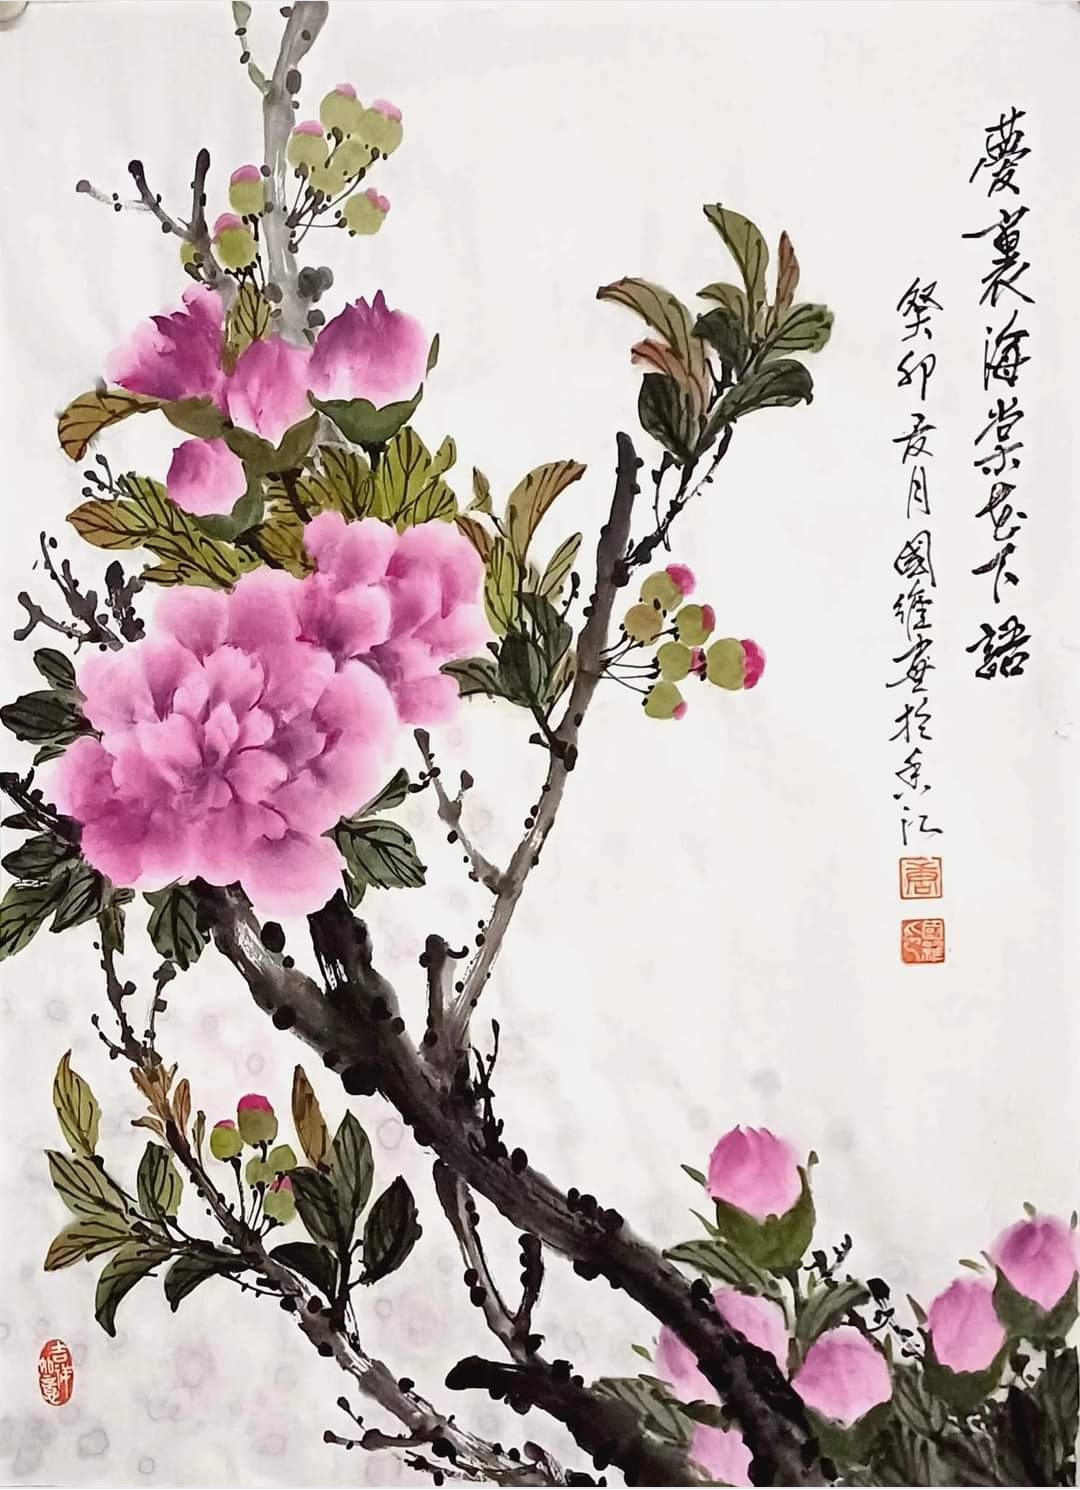 夢裏海棠花下語
癸卯夏月國維畫於香江
吉祥如意